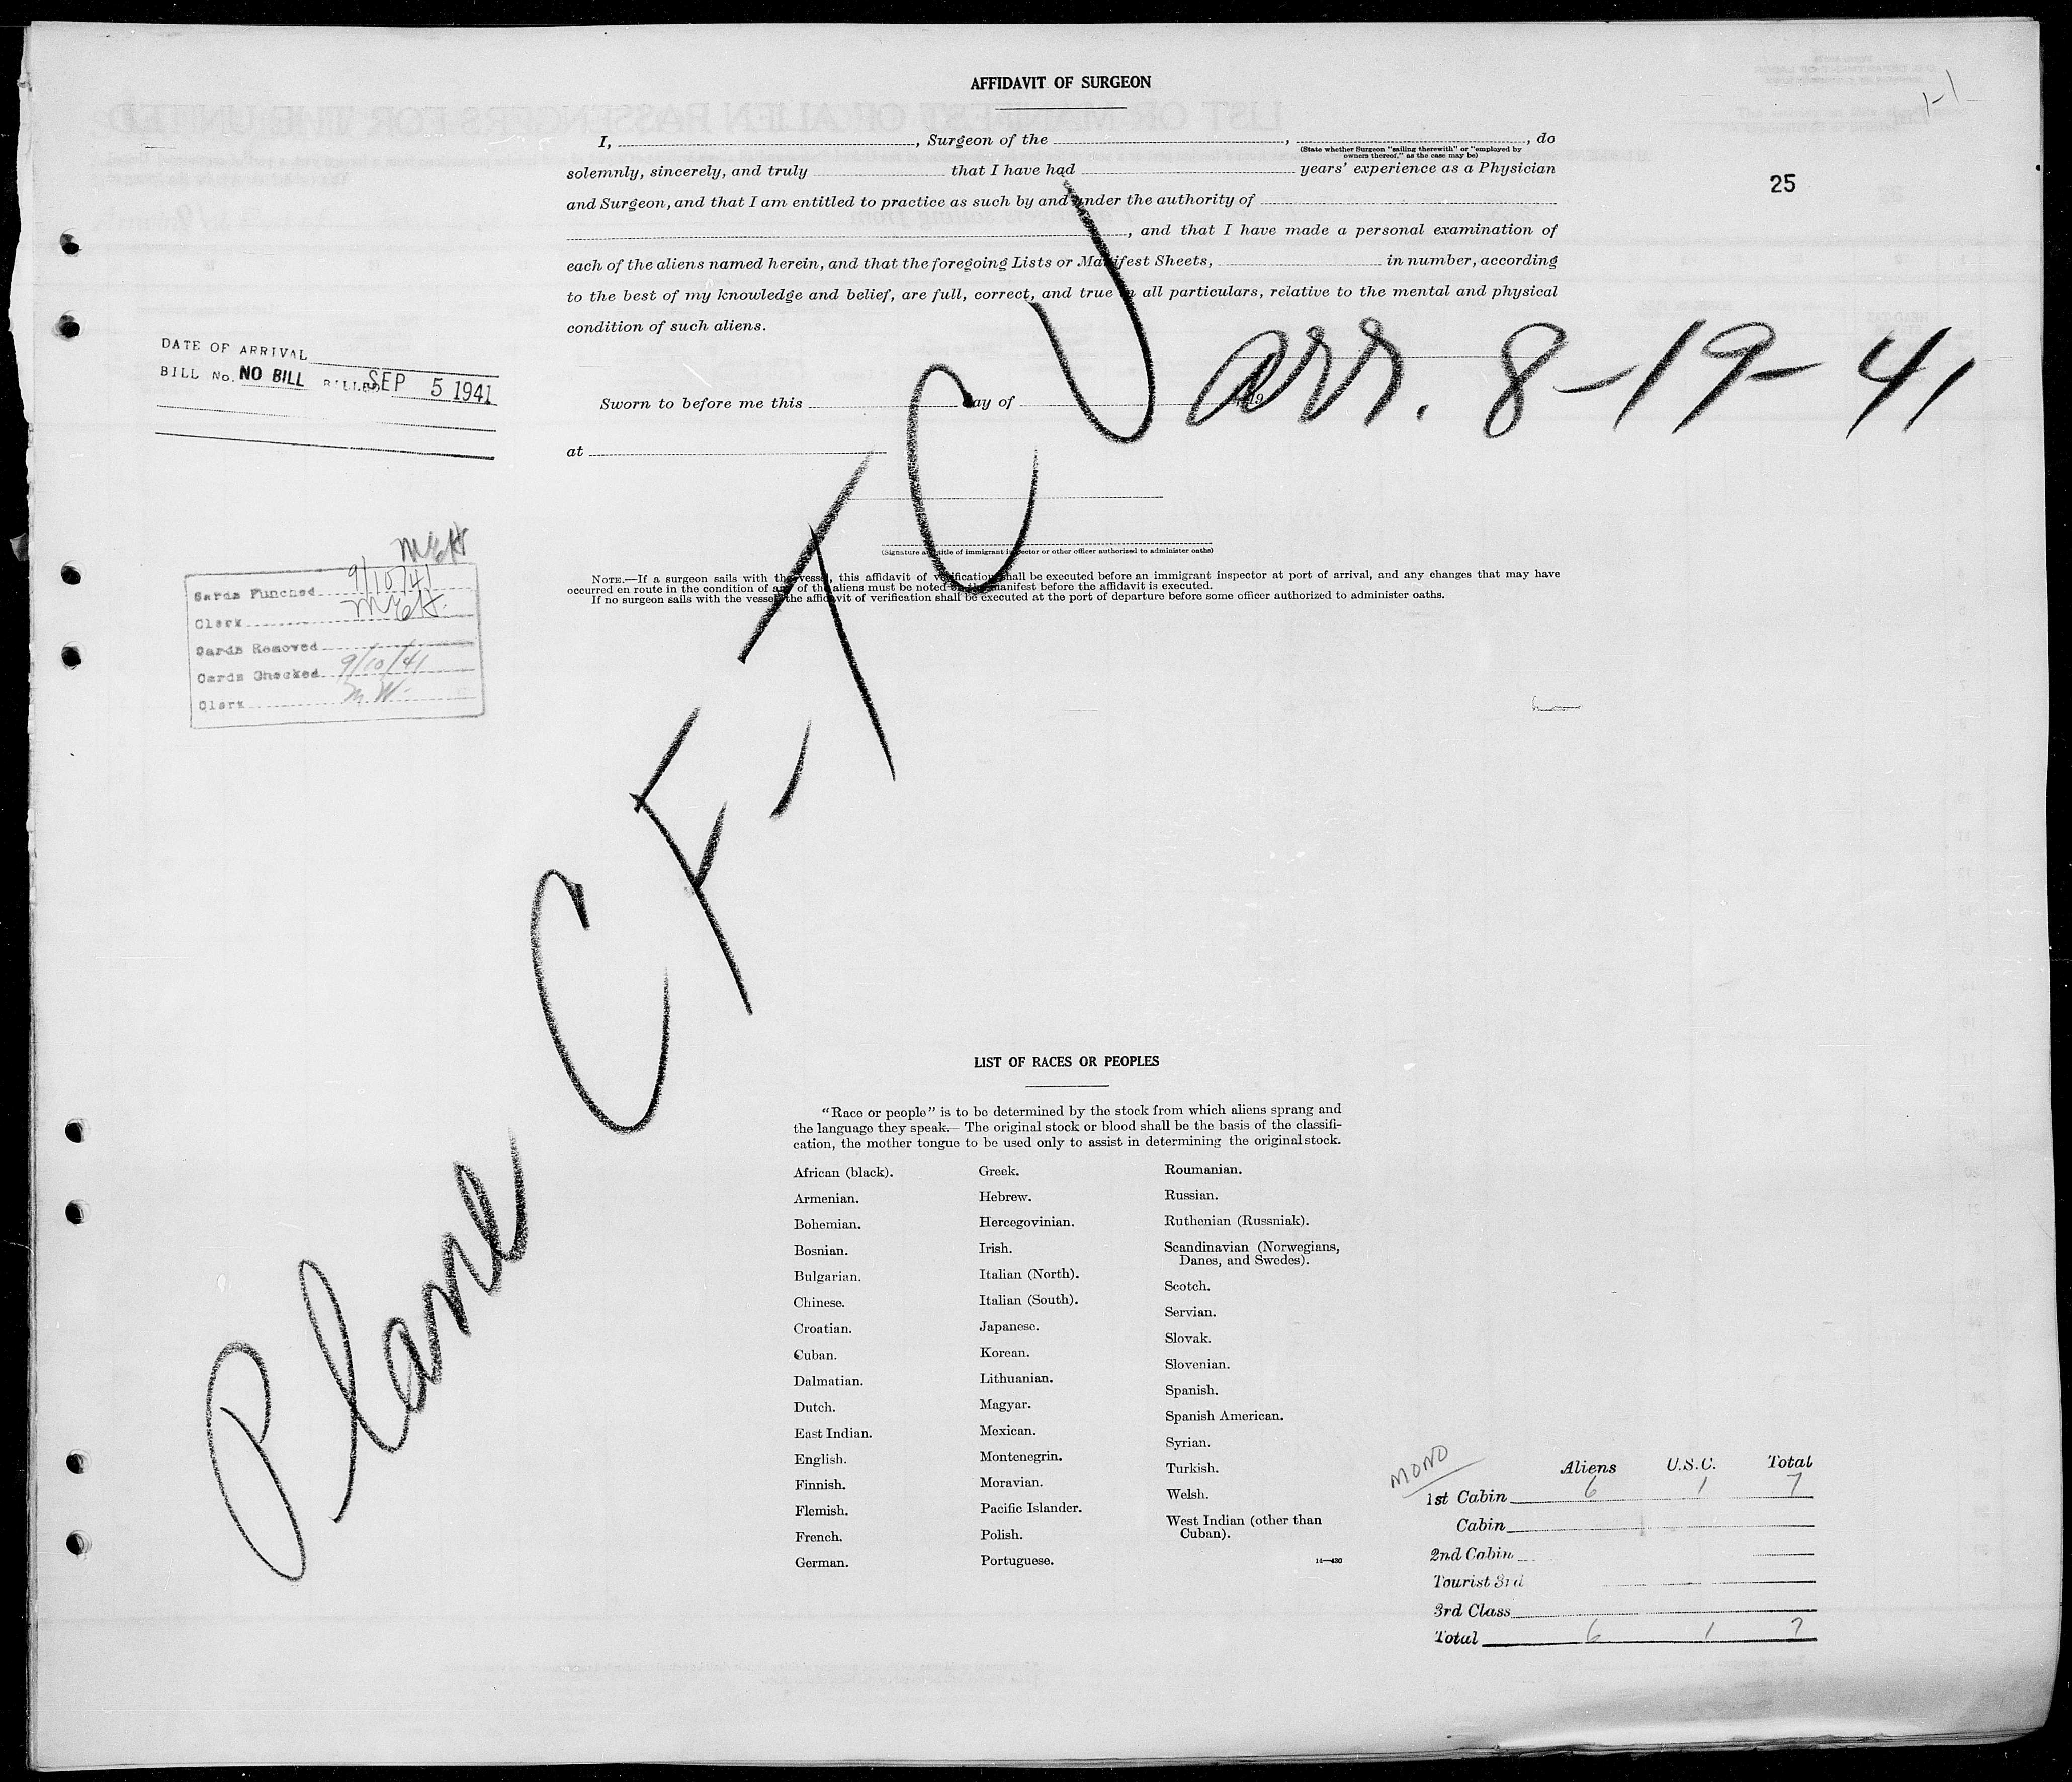 AFFIDAVIT OF SURGEON
1-1
I, , Surgeon of the , , do
(State whether Surgeon "sailing therewith" or "employed by
owners thereof," as the case may be)
solemnly, sincerely, and truly that I have had years' experience as a Physician
25
and Surgeon, and that I am entitled to practice as such by and under the authority of
, and that I have made a personal examination of
each of the aliens named herein, and that the foregoing Lists or Manifest Sheets, in number, according
to the best of my knowledge and belief, are full, correct, and true in all particulars, relative to the mental and physical
condition of such aliens.
DATE OF ARRIVAL
BILL No. NO BILL BILLED SEP 5 1941
arr. 8-19-41
Sworn to before me this day of , 19
at
(Signature and title of immigrant inspector or other officer authorized to administer oaths)
NOTE.—If a surgeon sails with the vessel, this affidavit of verification shall be executed before an immigrant inspector at port of arrival, and any changes that may have
occurred en route in the condition of any of the aliens must be noted on the manifest before the affidavit is executed.
If no surgeon sails with the vessel, the affidavit of verification shall be executed at the port of departure before some officer authorized to administer oaths.
MEH
Cards Punched 9/10/41
Clerk MEH.
Cards Removed
Cards Checked 9/10/41
Clerk M.W.
Plane CF-TCJ
LIST OF RACES OR PEOPLES
"Race or people" is to be determined by the stock from which aliens sprang and
the language they speak. The original stock or blood shall be the basis of the classifi-
cation, the mother tongue to be used only to assist in determining the original stock.
African (black).
Armenian.
Bohemian.
Bosnian.
Bulgarian.
Chinese.
Croatian.
Cuban.
Dalmatian.
Dutch.
East Indian.
English.
Finnish.
Flemish.
French.
German.
Greek.
Hebrew.
Hercegovinian.
Irish.
Italian (North).
Italian (South).
Japanese.
Korean.
Lithuanian.
Magyar.
Mexican.
Montenegrin.
Moravian.
Pacific Islander.
Polish.
Portuguese.
Roumanian.
Russian.
Ruthenian (Russniak).
Scandinavian (Norwegians,
Danes, and Swedes).
Scotch.
Servian.
Slovak.
Slovenian.
Spanish.
Spanish American.
Syrian.
Turkish.
Welsh.
West Indian (other than
Cuban).
14—430
MONO
Aliens U.S.C. Total
1st Cabin 6 1 7
Cabin
2nd Cabin
Tourist 3rd
3rd Class
Total 6 1 7